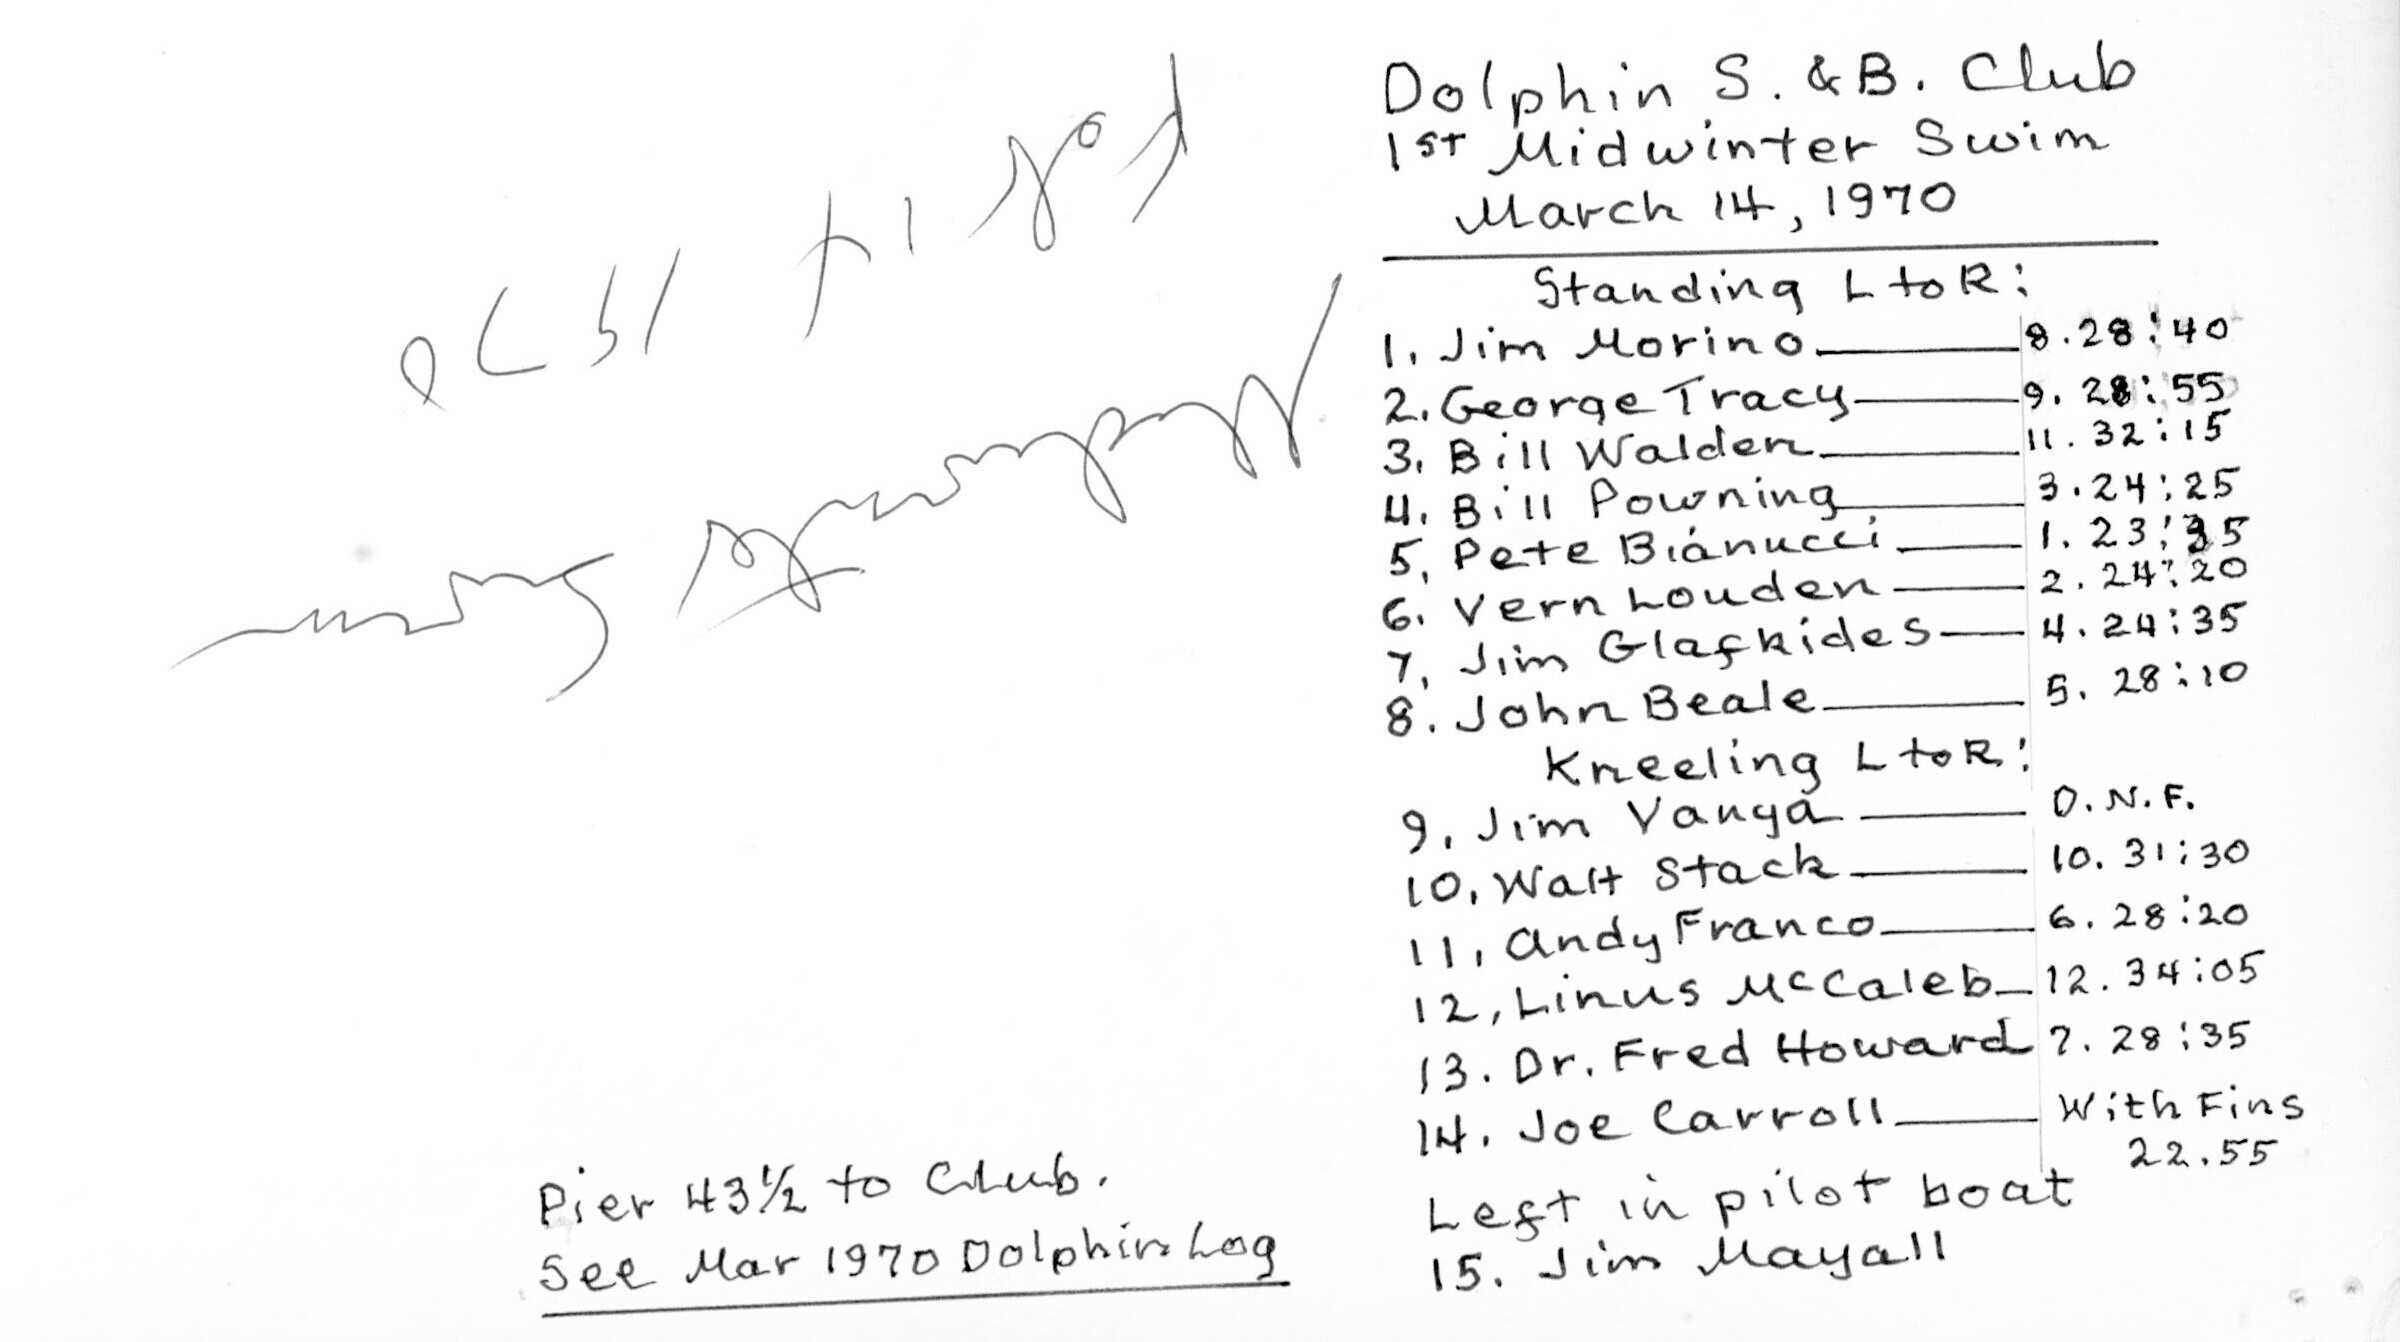 Dolphin S. & B. Club
1st Midwinter Swim
March 14, 1970
Standing L to R:
1. Jim Morino 8. 28:40
2. George Tracy 9. 28:55
3. Bill Walden 11. 32:15
4. Bill Powning 3. 24:25
5. Pete Bianucci 1. 23:35
6. Vern Louden 2. 24:20
7. Jim Glafkides 4. 24:35
8. John Beale 5. 28:10
Kneeling L to R:
9. Jim Vanya D.N.F.
10. Walt Stack 10. 31:30
11. Andy Franco 6. 28:20
12. Linus McCaleb 12. 34:05
13. Dr. Fred Howard 7. 28:35
14. Joe Carroll With Fins
22.55
Left in pilot boat
15. Jim Mayall
Pier 43½ to Club.
See Mar 1970 Dolphin Log